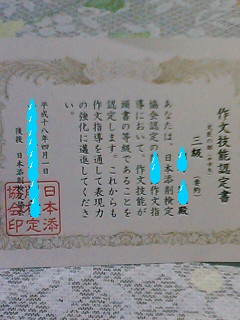 作文技能認定書
二級
殿
あなたは、日本添削検定
協会認定の 作文指
導において、作文技能が
頭書の等級であることを
認定します。これからも
作文指導を通して表現力
の強化に邁進してくださ
い。
平成十八年四月一日
後援 日本添削検定協会
日本添
削検定
協会印